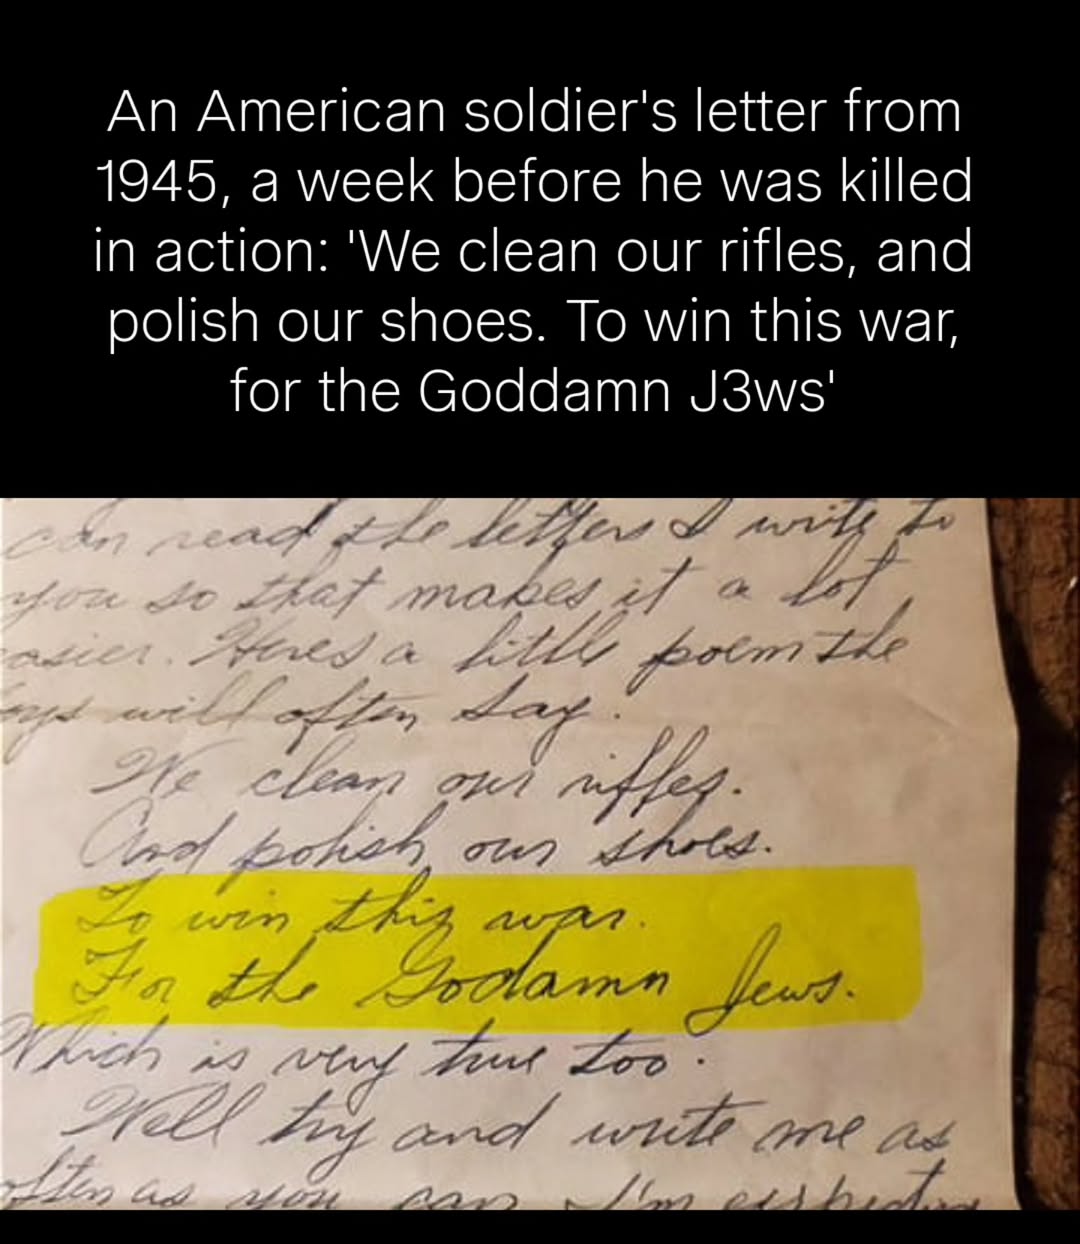 An American soldier's letter from
1945, a week before he was killed
in action: 'We clean our rifles, and
polish our shoes. To win this war,
for the Goddamn J3ws'
can read the letters I write to
you so that makes it a lot
easier. Heres a little poem the
will often say.
We clean our riffles.
And polish our shoes.
To win this war.
For the Godamn Jews.
Which is very true too.
Well try and write me as
often as you can I'm